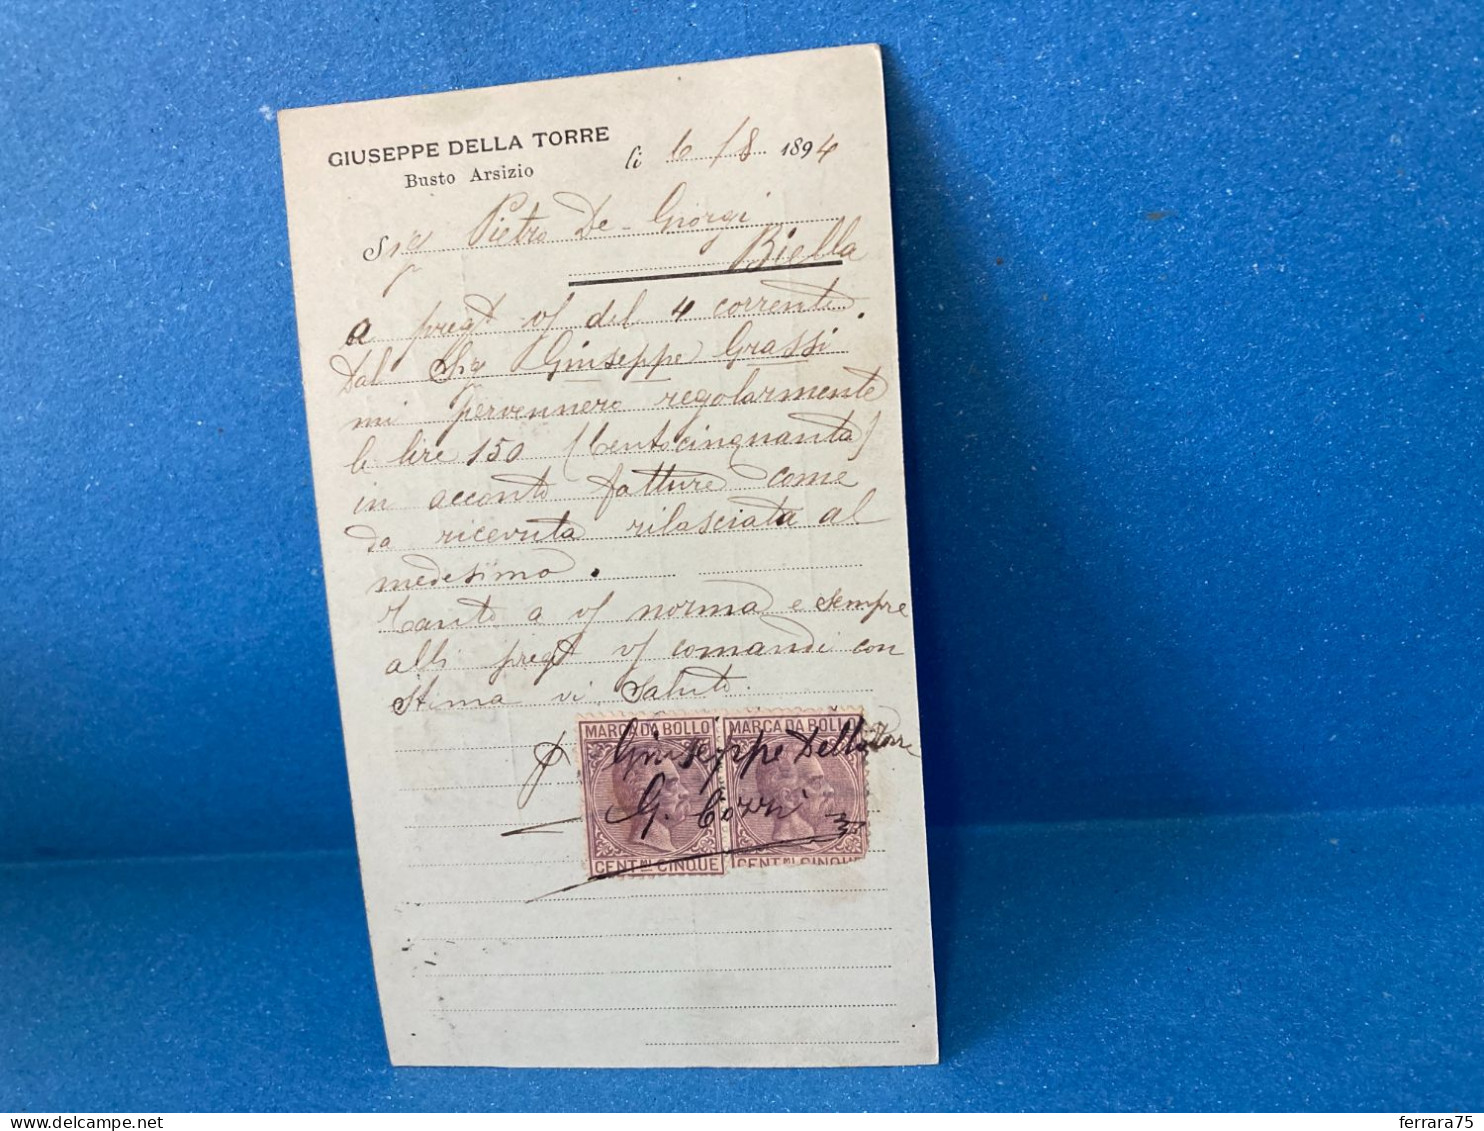 GIUSEPPE DELLA TORRE
Busto Arsizio
li 6/8 1894
Sig Pietro De-Giorgi
Biella
a preg v/ del 4 corrente.
Dal Sig Giuseppe Grassi
mi pervennero regolarmente
le lire 150 (Centocinquanta)
in acconto fatture come
da ricevuta rilasciata al
medesimo.
Tanto a v/ norma e sempre
alli preg v/ comandi con
stima vi saluto.
MARCA DA BOLLO MARCA DA BOLLO
p Giuseppe Della Torre
G.
CENT.MI CINQUE CENT.MI CINQUE
ferrara75